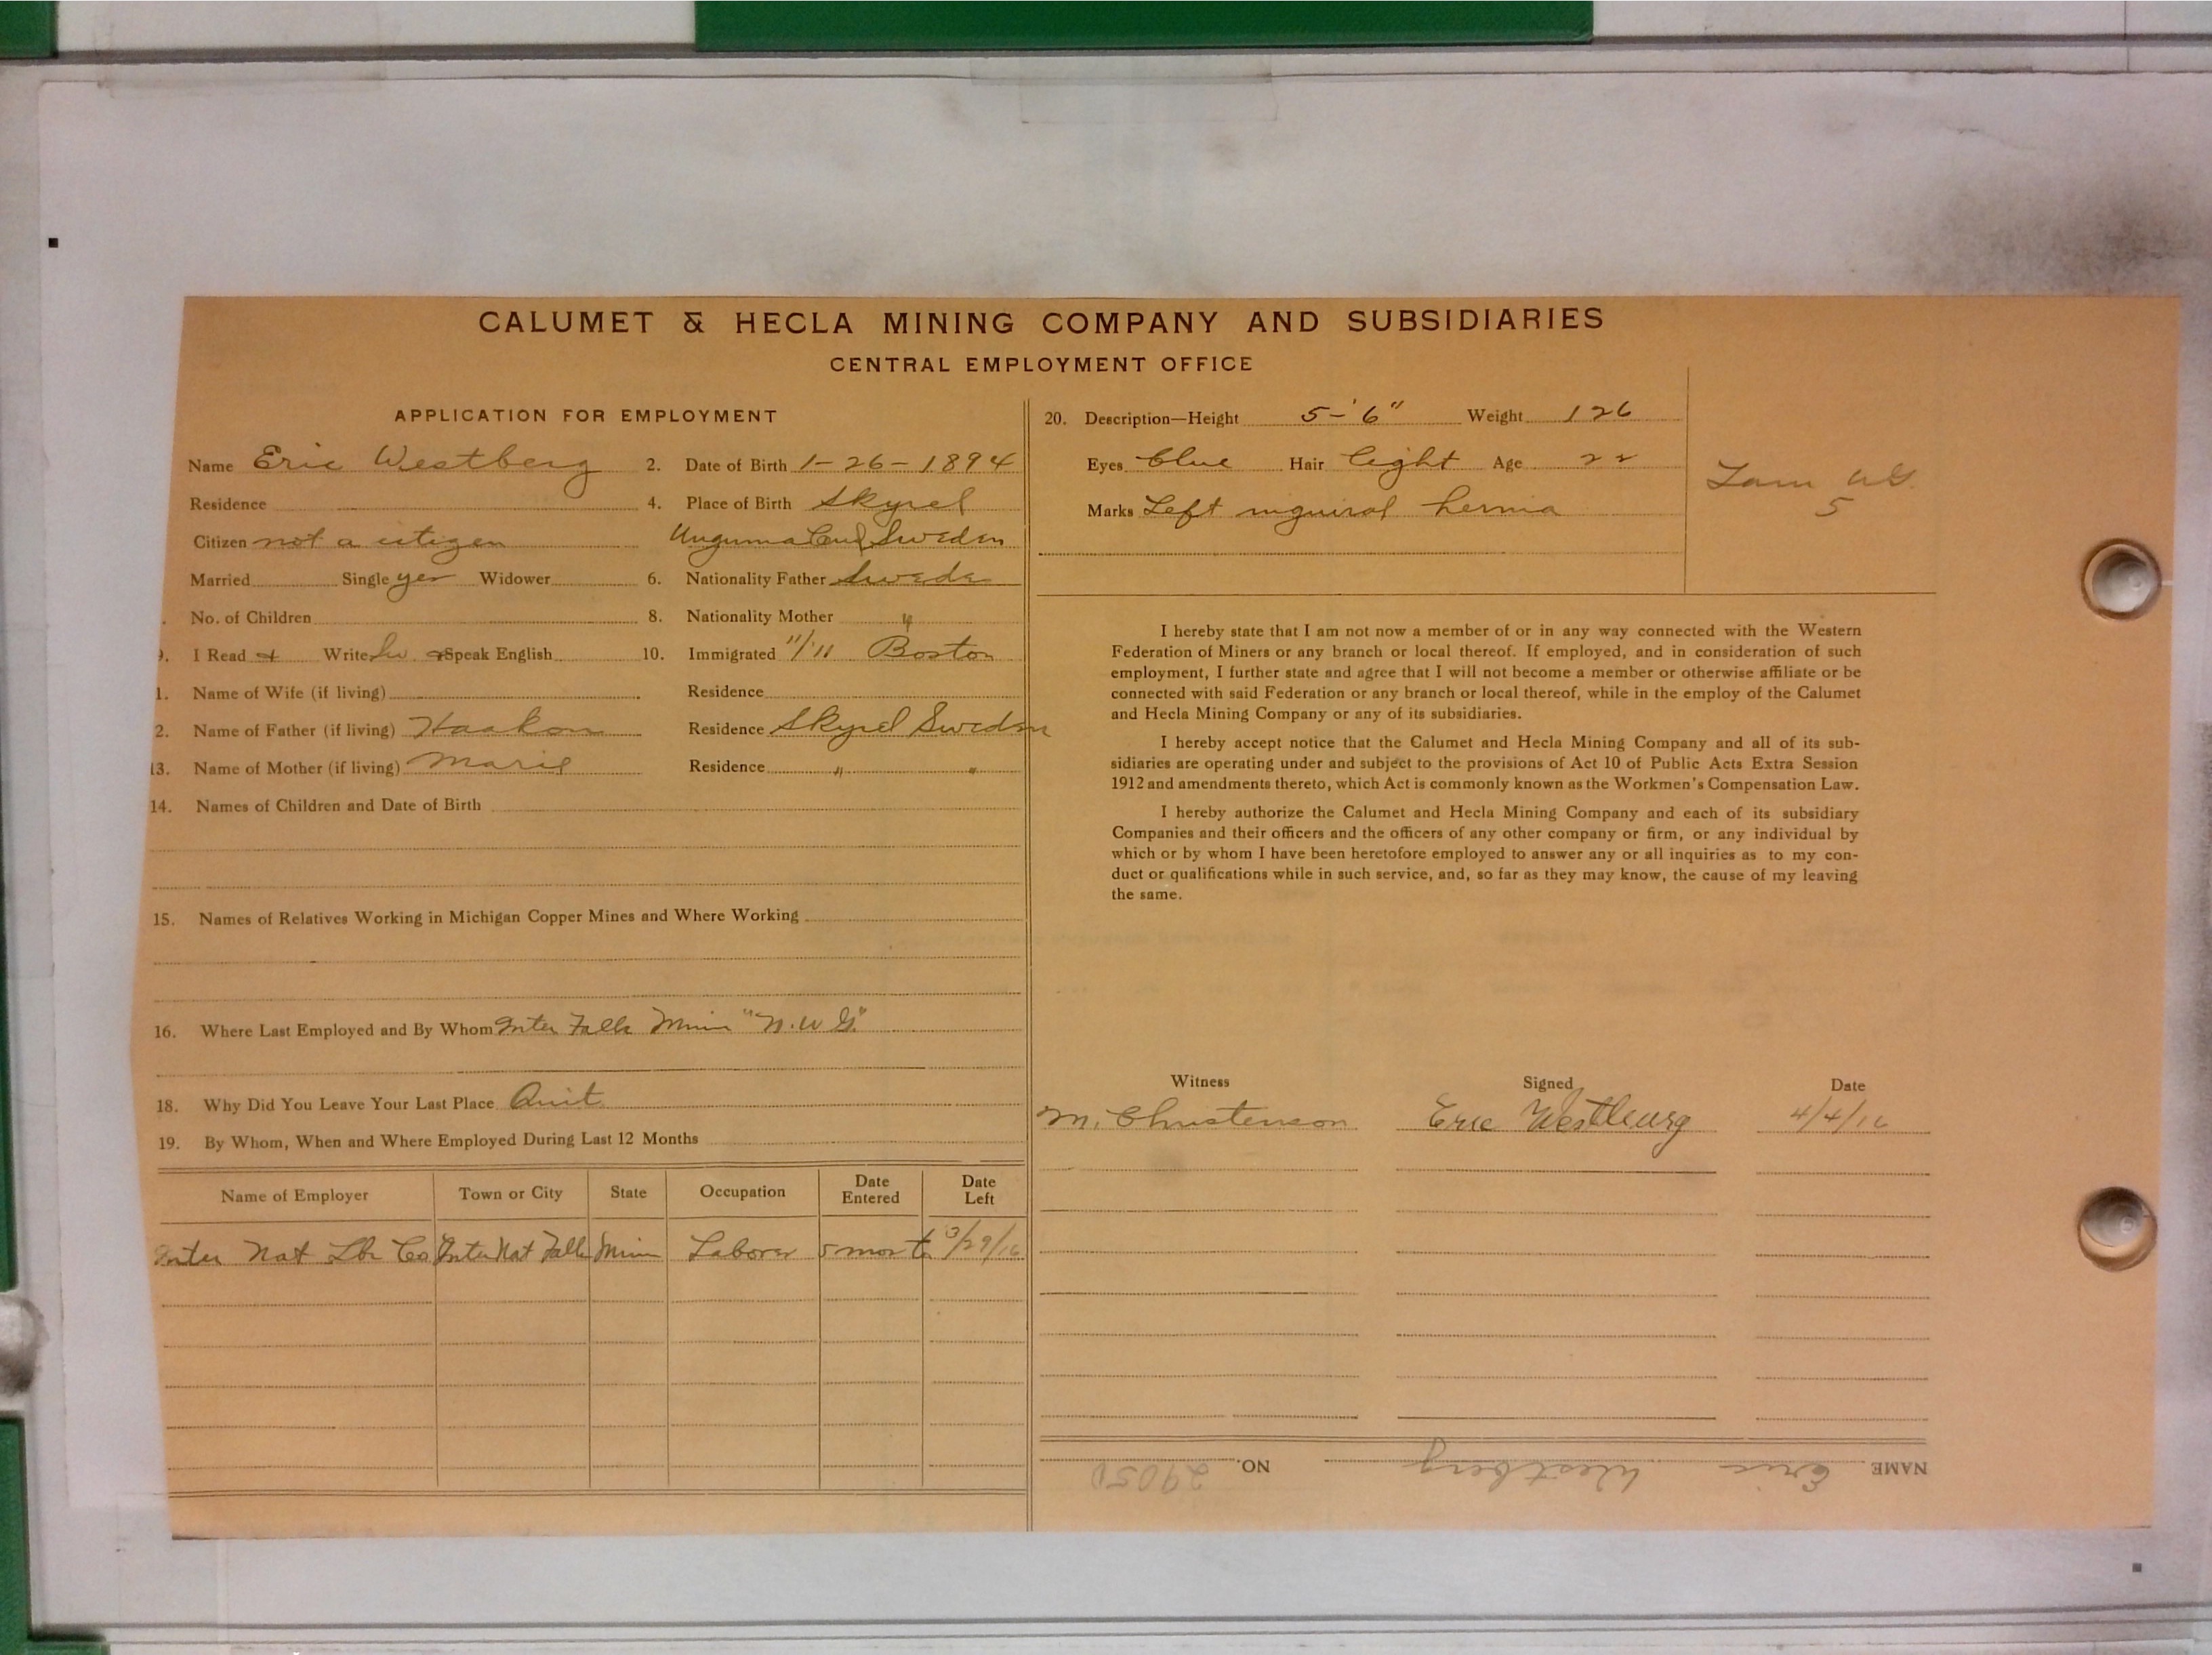 CALUMET & HECLA MINING COMPANY AND SUBSIDIARIES
CENTRAL EMPLOYMENT OFFICE
APPLICATION FOR EMPLOYMENT
Name Eric Westberg 2. Date of Birth 1-26-1894
Residence 4. Place of Birth Skyrel
Citizen not a citizen Sweden
Married Single yes Widower 6. Nationality Father Swede
No. of Children 8. Nationality Mother "
9. I Read & Write Sw & Speak English 10. Immigrated 11/11 Boston
1. Name of Wife (if living) Residence
2. Name of Father (if living) Haakon Residence Skyrel Sweden
13. Name of Mother (if living) Marie Residence " "
14. Names of Children and Date of Birth
15. Names of Relatives Working in Michigan Copper Mines and Where Working
16. Where Last Employed and By Whom Inter Falls Minn "N.W G"
18. Why Did You Leave Your Last Place Quit
19. By Whom, When and Where Employed During Last 12 Months
Name of Employer Town or City State Occupation Date Entered Date Left
Inter Nat Lbr Co Inter Nat Falls Minn Laborer 5 mos to 3/29/16
20. Description—Height 5-'6" Weight 126
Eyes blue Hair light Age 22
Marks Left inguiral hernia
5
I hereby state that I am not now a member of or in any way connected with the Western
Federation of Miners or any branch or local thereof. If employed, and in consideration of such
employment, I further state and agree that I will not become a member or otherwise affiliate or be
connected with said Federation or any branch or local thereof, while in the employ of the Calumet
and Hecla Mining Company or any of its subsidiaries.
I hereby accept notice that the Calumet and Hecla Mining Company and all of its sub-
sidiaries are operating under and subject to the provisions of Act 10 of Public Acts Extra Session
1912 and amendments thereto, which Act is commonly known as the Workmen's Compensation Law.
I hereby authorize the Calumet and Hecla Mining Company and each of its subsidiary
Companies and their officers and the officers of any other company or firm, or any individual by
which or by whom I have been heretofore employed to answer any or all inquiries as to my con-
duct or qualifications while in such service, and, so far as they may know, the cause of my leaving
the same.
Witness Signed Date
M. Christenson Eric Westburg 4/4/16
NAME Eric Westberg NO. 29050